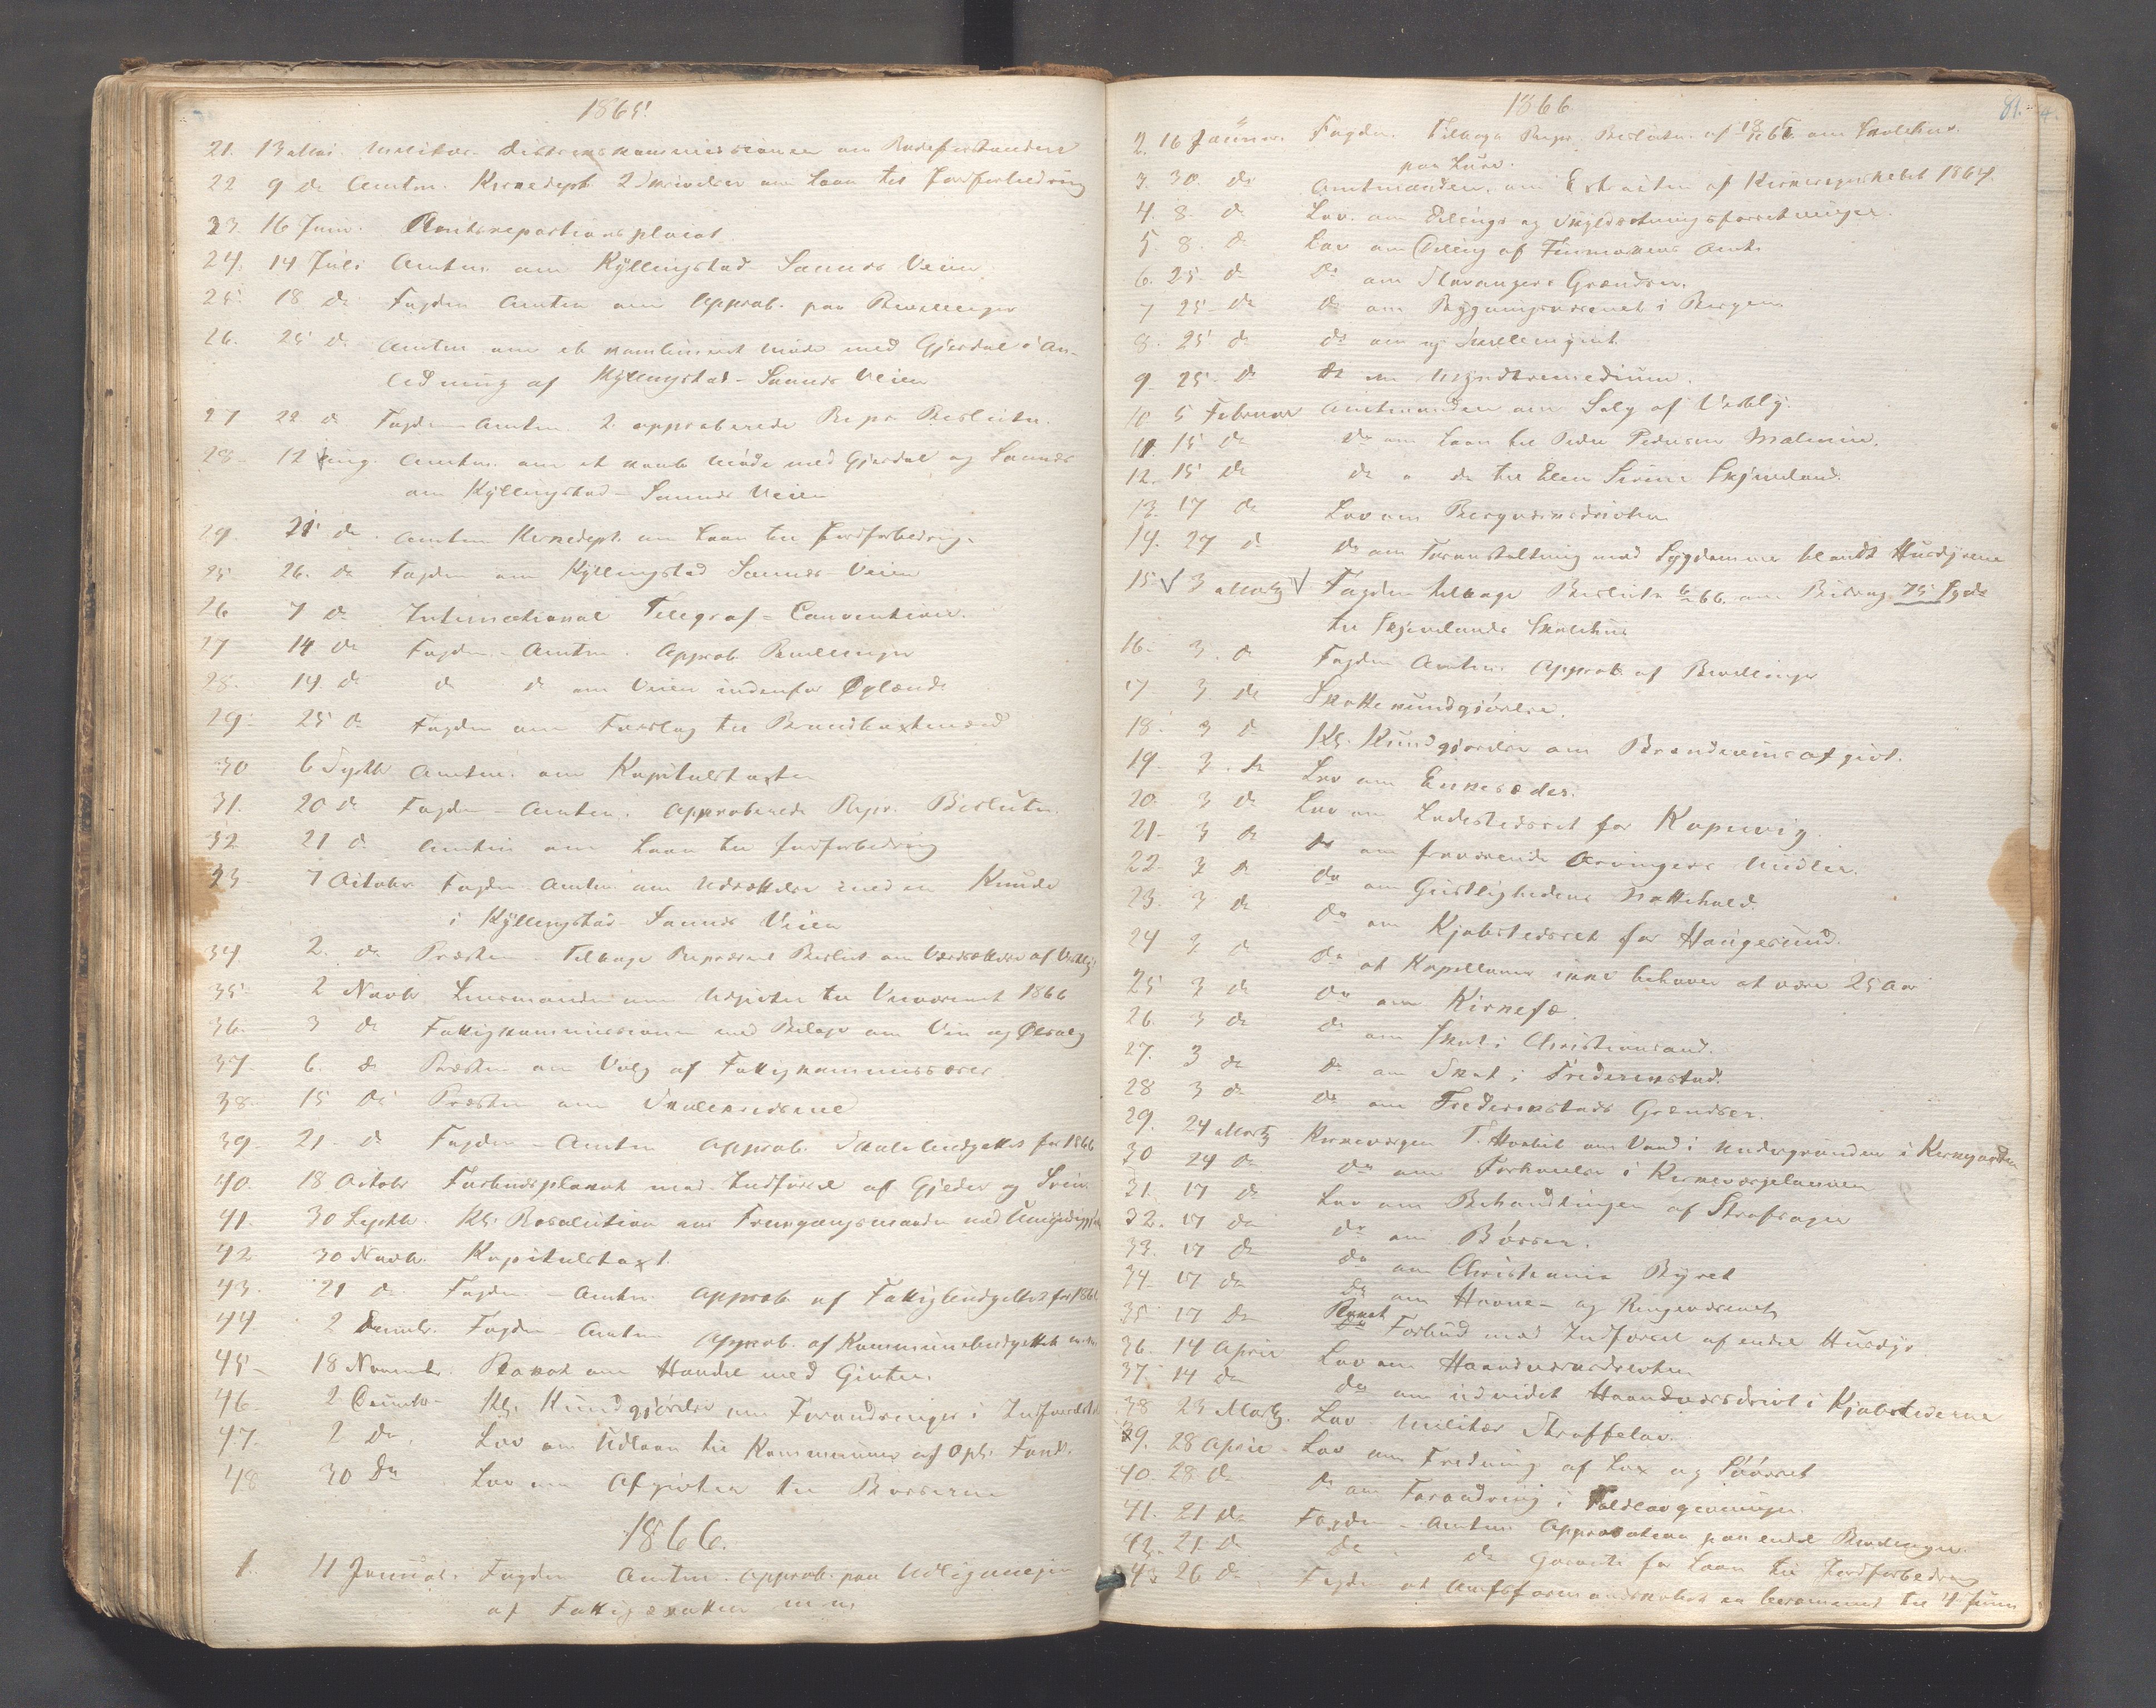 1865.
21. 13 Mai. Militær-Districtskommissionen om Rodeforstandere
22 9 do Amtm. Kirkedept. 2 Skrivelser om Laan til Jordforbedring
23. 16 Juni. Amtsrepartionsplacat
24. 14 Juli Amtm. om Kyllingstad-Sannes Veien
25 18 do Fogden-Amtm om Approb. paa Bevilinger
26. 25 do Amtm om et kombineret Møde med Gjesdal i An-
ledning af Kyllingstad-Sannes Veien
27 22 do Fogden-Amtm 2 approberede Repr. Beslutn.
28 12 Aug. Amtm. om et komb Møde med Gjesdal og Sannes
om Kyllingstad-Sannes Veien
29. 21 do Amtm Kirkedept. om Laan til Jordforbedring.
25 26. do Fogden om Kyllingstad Sannes Veien
26 7 do International Telegraf-Convention.
27 14 do Fogden-Amtm. Approb. Bevilinger
28. 14. do do do om Veien indenfor Øglænd
29. 25 do Fogden om Forslag til Brandtaxtmænd
30 6 Septbr Amtm. om Kapitelstaxten
31. 20 do Fogden-Amtm. Approberede Repr. Beslutn.
32 21 do Amtm om Laan til Jordforbedring
33 7 Octobr Fogden-Amtm om Udsættelse med en Knude
i Kyllingstad Sannes Veien
34. 2. do Præsten Tilbage Repræsent Beslut. om Værdsættelse af
35 2 Novb Lensmanden om Udgifter til Veivæsenet 1866
36. 3 do Fattigkommissionen med Bilage om Vin og Ølsalg
37. 6. do Præsten om Valg af Fattigkommissærer
38. 15 do Præsten om Skolekredsene
39. 21 do Fogden-Amtm Approb. Skolebudgettet for 1866
40. 18 Octobr Forbudsplakat mod Indførsel af Gjeder og Sviin
41. 30 Septbr. Kgl. Resolution om Fremgangsmaaden ved
42 30 Novb. Kapitelstaxt.
43. 21 do Fogden-Amtm Approb af Fattigbudgettet for 1866
44 2 Decembr. Fogden-Amtm Approb. af Kommunebudgettet m.m.
45 18 Novembr. Plakat om Handel med Gifter.
46 2 Decembr Kgl. Kundgjørelse om Forandringer i
47. 2 do. Lov om Udlaan til Kommuner af Opl. Fond.
48 30 do Lov om Afgifter til Børserne
1866.
1. 11 Januar. Fogden Amtm. approb. paa Udligningen
af Fattigskatten m.m.
1866.
81.
2. 16 Januar. Fogden Tilbage Repr. Beslutn. af om Skolehus
paa Lura.
3. 30. do Amtmanden om Extracten af Kirkeregnskabet 1864.
4. 8. do Lov. om Delings og Skyldsætningsforretninger.
5. 8. do Lov om Deling af Finmarkens Amt.
6. 25 do do om Stavangers Grændser.
7 25 do do om Bygningsvæsenet i Bergen
8. 25 do do om
9 25. do do om Myndtremedium.
10 5 Februar Amtmanden om Salg af Vatly.
11 15 do do om Laan til Peder Pedersen Malmin.
12. 15 do do " do til Elen Sirine Skjæveland.
13. 17 do Lov om Bergværksdriften
14. 27 do do om Foranstaltning mod Sygdomme blandt Husdyrene
15 3 Marts Fogden tilbage Beslutn 66. om Bidrag 75 Spd
til Skjævelands Skolehus
16. 3. do Fogden Amtm. Approb. af Bevilinger
17 3. do Skattekundgjørelse.
18. 3 do Kgl. Kundgjørelse om Brændeviinsafgivt.
19 3. do Lov om Enkesæder.
20. 3 do Lov om Ladestedsret for Kopervig
21. 3 do do om fraværende Arvingers Midler.
22. 3 do do om Geistlighedens Nattehold.
23. 3 do do om Kjøbstedsret for Haugesund.
24 3 do do at Kapellaner ikke behøver at være 25 Aar
25 3 do do om Kirkefæ.
26. 3 do do om Skat i Christiansand.
27. 3 do do om Skat i Frederikstad.
28 3 do do om Frederikstads Grændser.
29. 24 Marts Kirkeværgen T. Hoabet om Vand i Undergrunden i Kirkegaarden
30 24 do do om Forhøielse i Kirkeværgelønnen
31. 17 do Lov om Behandlingen af Strafsager
32. 17 do do om Børser.
33. 17 do do om Christiania Byret
34 17 do do om Havne- og Ringevæsenet
35 17 do Plakat Forbud mod Indførsel af endel Husdyr
36. 14 April Lov om Haandværksdriften
37. 14 do do om udvidet Haandværksdrivt i Kjøbstederne
38 23 Marts. Lov Militær Straffelov.
39. 28 April Lov om Fredning af Lax og Søørret
40. 28 do do om Forandring i Toldlovgivningen.
41. 21 do Fogden-Amtm Approbation paa endel Bevilinger.
42. 21 do do do Garanti for Laan til Jordforbedring
43 26 do Fogden at Amtsformandskabet er berammet til 4 Juni